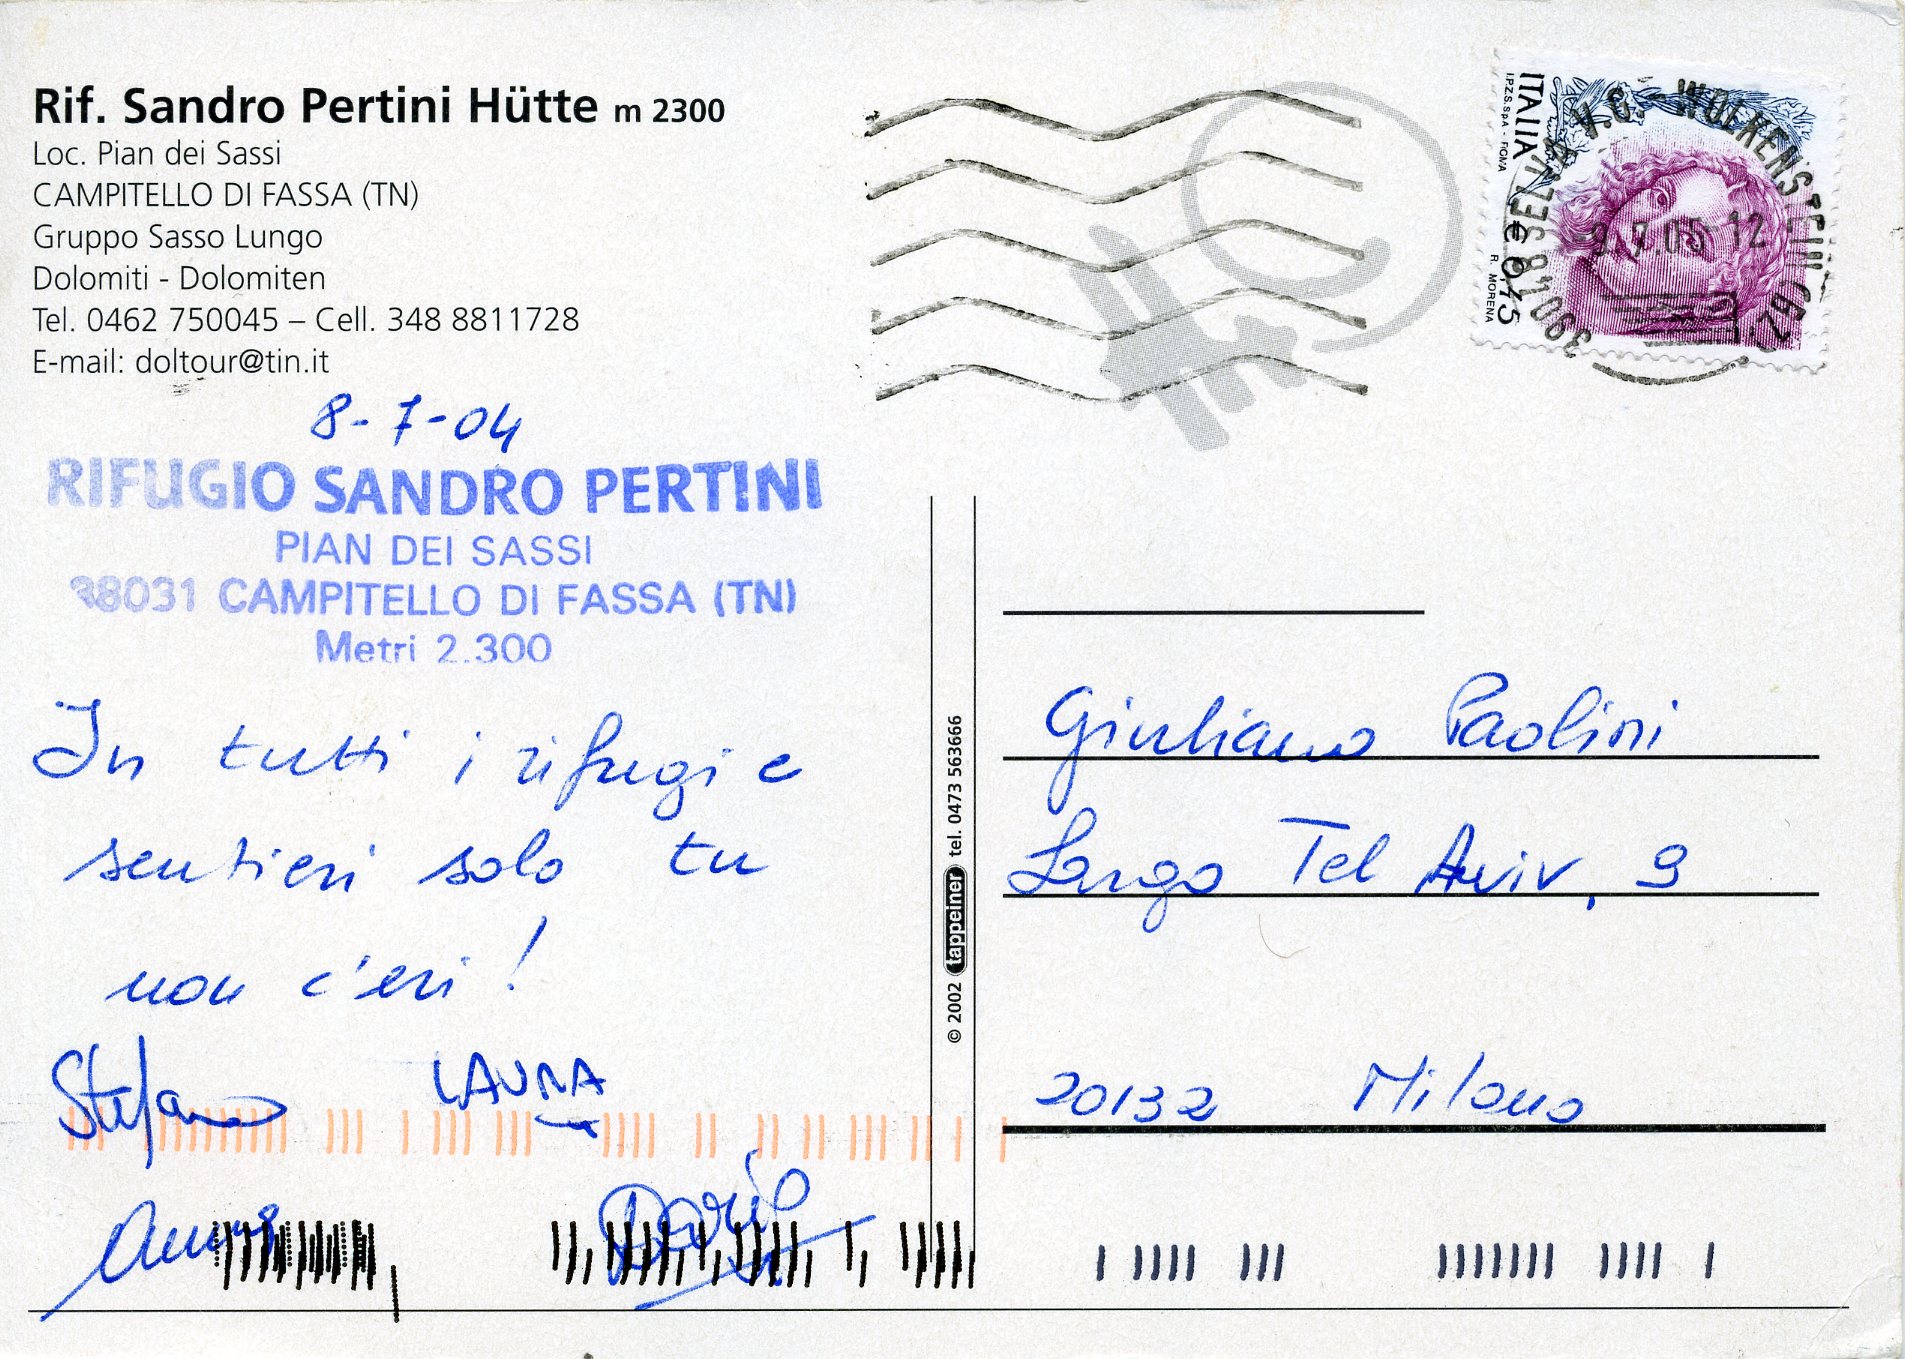 Rif. Sandro Pertini Hütte m 2300
Loc. Pian dei Sassi
CAMPITELLO DI FASSA (TN)
Gruppo Sasso Lungo
Dolomiti - Dolomiten
Tel. 0462 750045 – Cell. 348 8811728
E-mail: doltour@tin.it
8-7-04
RIFUGIO SANDRO PERTINI
PIAN DEI SASSI
38031 CAMPITELLO DI FASSA (TN)
Metri 2.300
In tutti i rifugi e
sentieri solo tu
non c'eri!
Stefano LAURA
Dario
© 2002 tappeiner tel. 0473 563666
ITALIA
I.P.Z.S. SpA - ROMA
€ 0,45
R. MORENA
39048 SELVA V.G. WOLKENSTEIN
Giuliano Paolini
Largo Tel Aviv, 9
20132 Milano